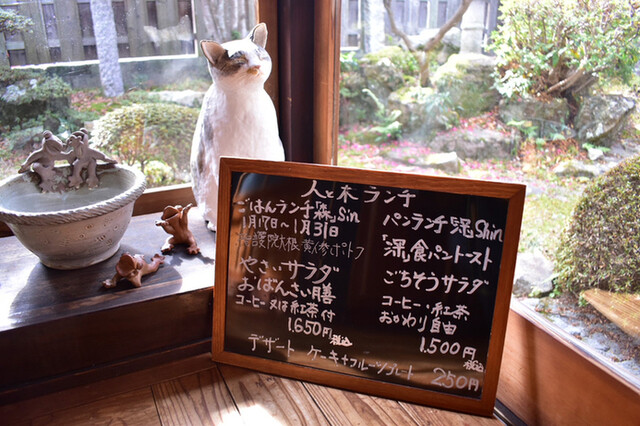 人と木 ランチ
ごはんランチ「森」Sin
1月17日〜1月31日
聖護院大根 黄人参ポトフ
やさいサラダ
おばんざい膳
コーヒー又は紅茶付
1.650円税込
パンランチ Shin
食パントースト
ごちそうサラダ
コーヒー・紅茶
おかわり自由
1.500円税込
デザート ケーキ+フルーツプレート 250円